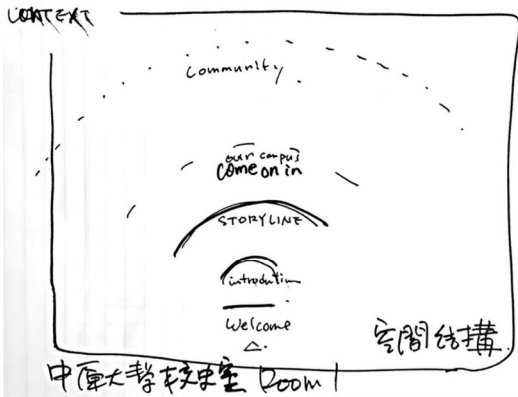 CONTEXT
community
our campus
come on in
STORYLINE
introduction
Welcome
空間結構
中原大學校史室 Room 1